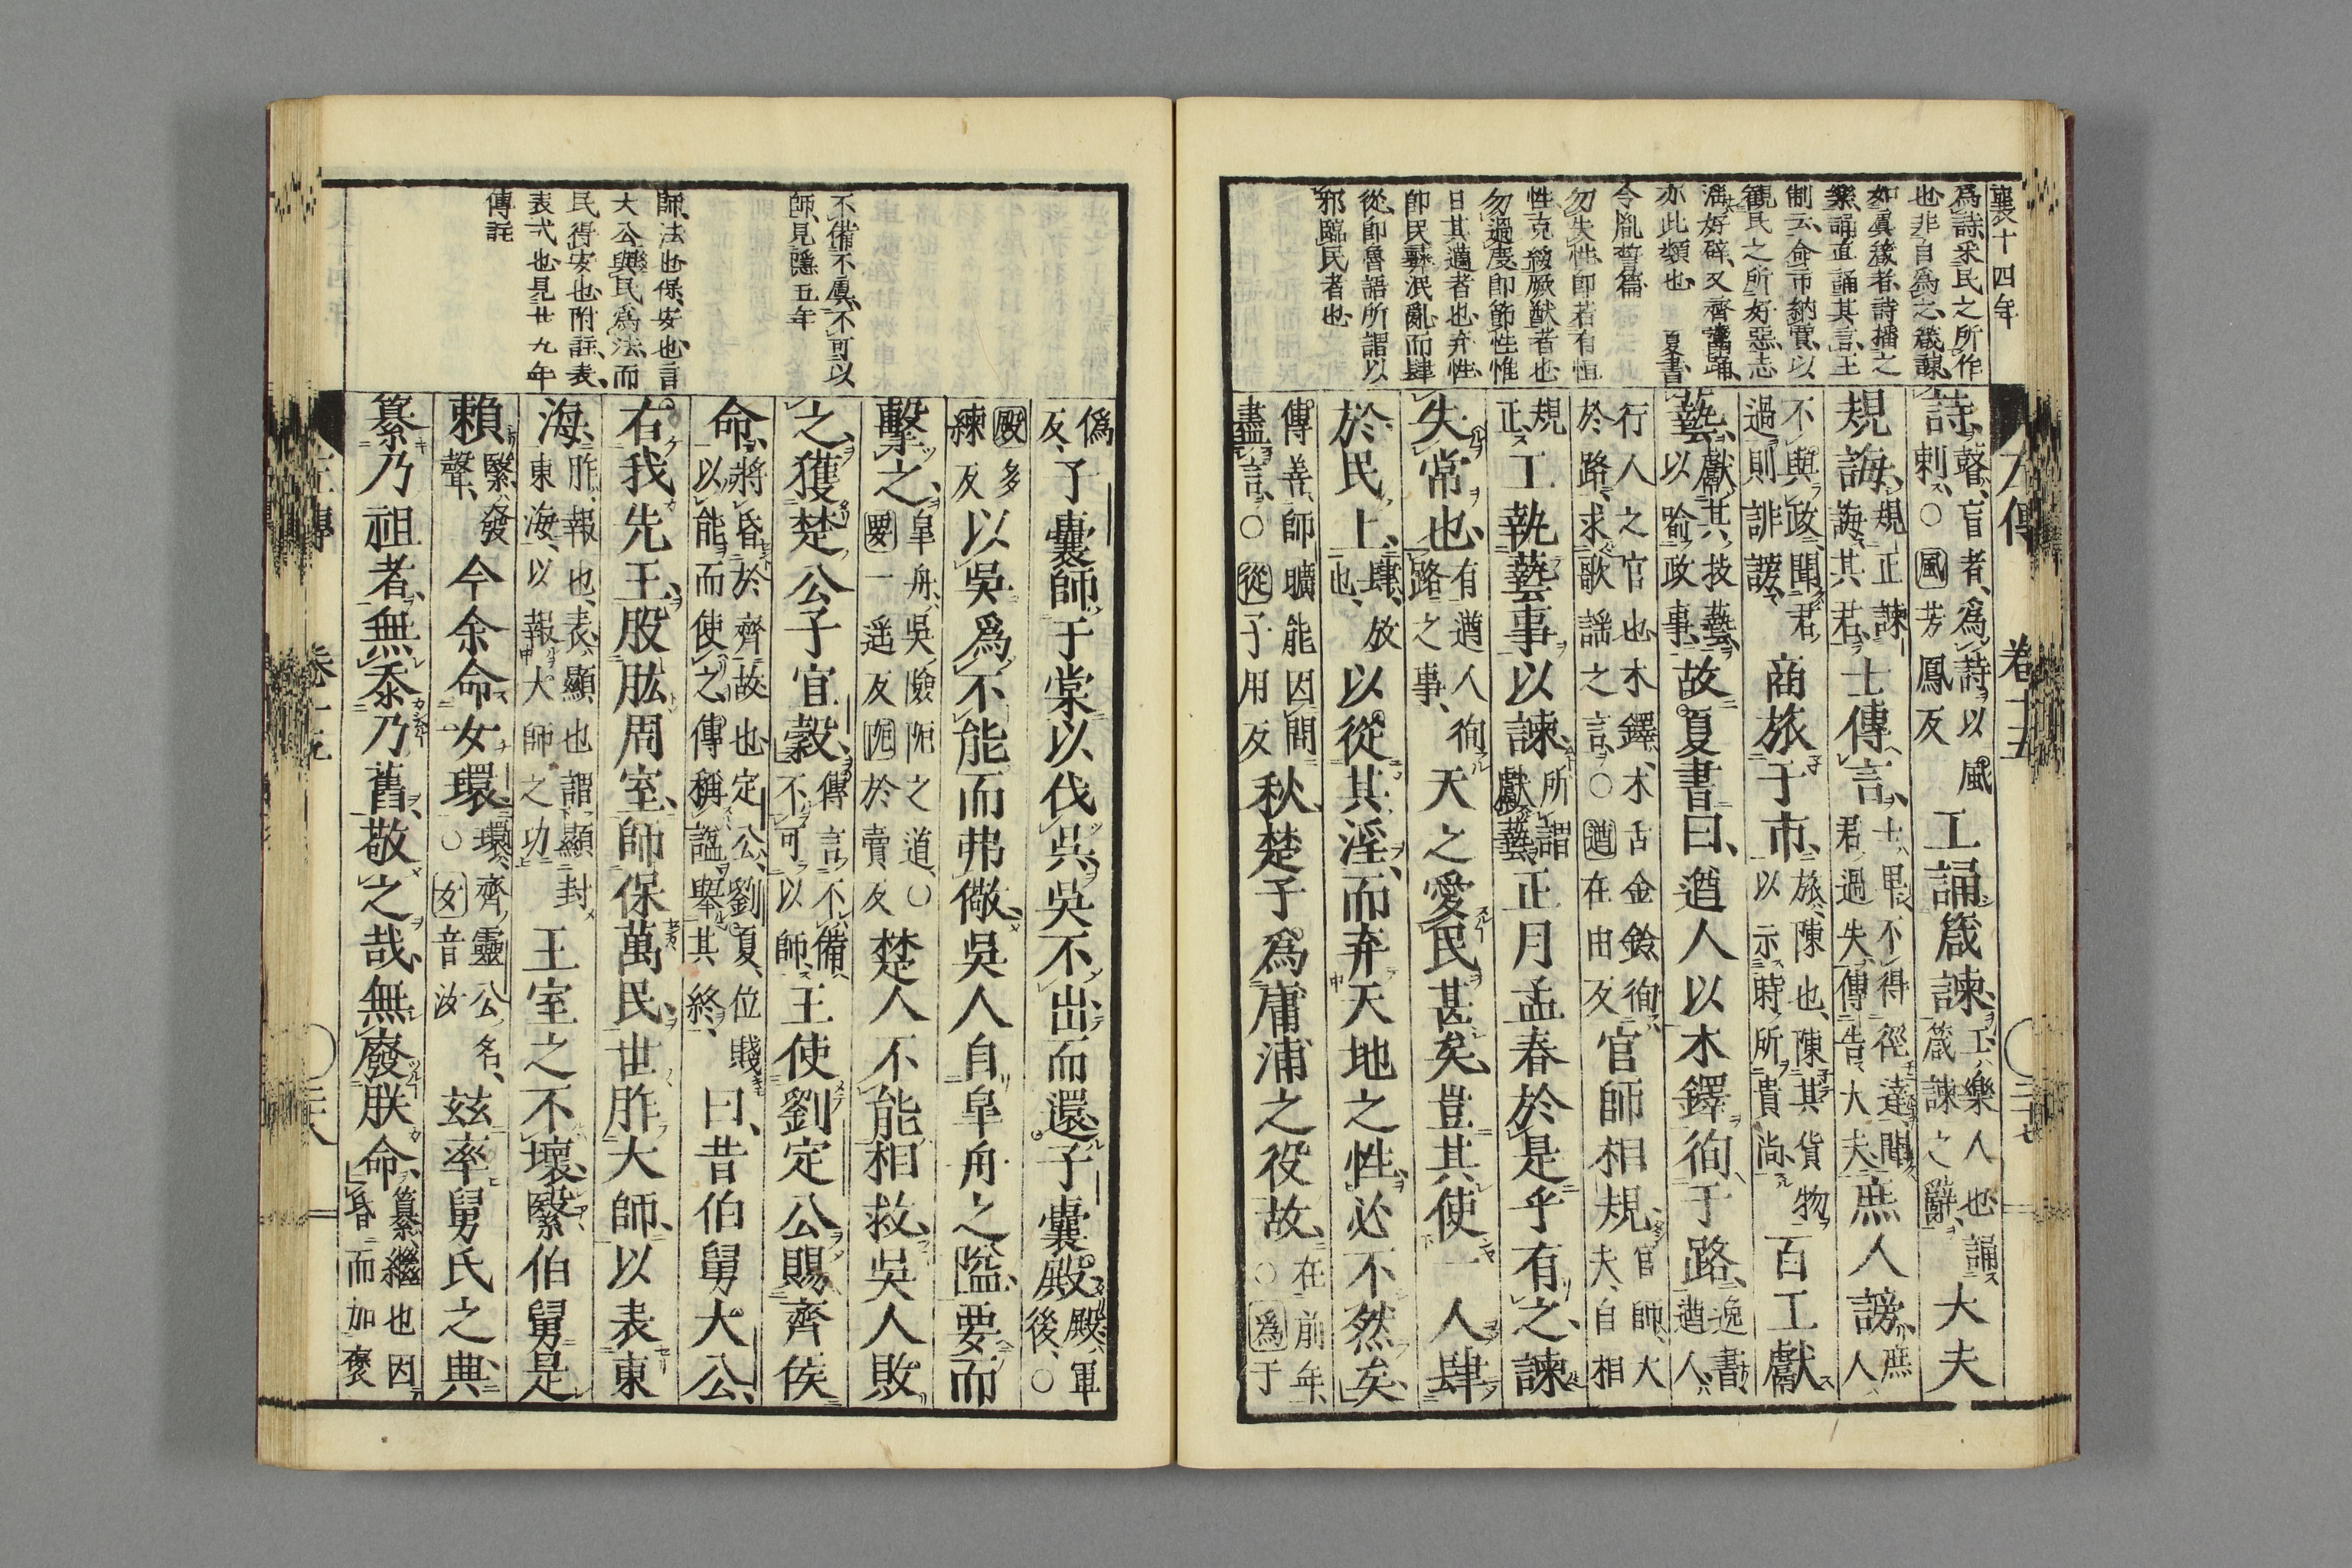 襄十四年
爲詩采民之所作
也非自爲之箴諫
如虞箴者詩播之
樂誦直誦其言王
制云命市納賈以
觀民之所好惡志
淫好辟又齊屨賤踊
亦此類也 夏書
今胤誓篇
勿失性即若有恒
性克綏厥猷者也
勿過度即節性惟
日其邁者也弃性
即民彝泯亂而肆
從即魯語所謂以
邪臨民者也
左傳 卷十五 二十七
詩瞽盲者爲詩以風刺○風芳鳳反工誦箴諫工樂人也誦箴諫之辭大夫
規誨規正諫誨其君士傳言士卑不得徑達聞君過失傳告大夫庶人謗庶人
不與政聞君過則誹謗商旅于市旅陳也陳其貨物以示時所貴尚百工獻
藝獻其技藝以喻政事故夏書曰遒人以木鐸徇于路逸書遒人
行人之官也木鐸木舌金鈴徇於路求歌謠之言○遒在由反官師相規官師大夫自相
規正工執藝事以諫所謂獻藝正月孟春於是乎有之諫
失常也有遒人徇路之事天之愛民甚矣豈其使一人肆
於民上肆放也以從其淫而弃天地之性必不然矣
傳善師曠能因問盡言○從子用反秋楚子爲庸浦之役故在前年○爲于
僞反子囊師于棠以伐吳吳不出而還子囊殿殿軍後○
殿多練反以吳爲不能而弗儆吳人自皐舟之隘要而
擊之皐舟吳險阨之道○要一遥反阨於賣反楚人不能相救吳人敗
之獲楚公子宜穀傳言不備不可以師王使劉定公賜齊侯
命將昏於齊故也定公劉夏位賤以能而使之傳稱謚舉其終曰昔伯舅大公
右我先王股肱周室師保萬民世胙大師以表東
海胙報也表顯也謂顯封東海以報大師之功王室之不壞繄伯舅是
賴繄發聲今余命女環環齊靈公名○女音汝兹率舅氏之典
纂乃祖考無忝乃舊敬之哉無廢朕命纂繼也因昏而加褒
不備不虞不可以
師見隱五年
師法也保安也言
大公與民爲法而
民得安也附註表
表式也見廿九年
傳註
左傳 卷十五 二十八